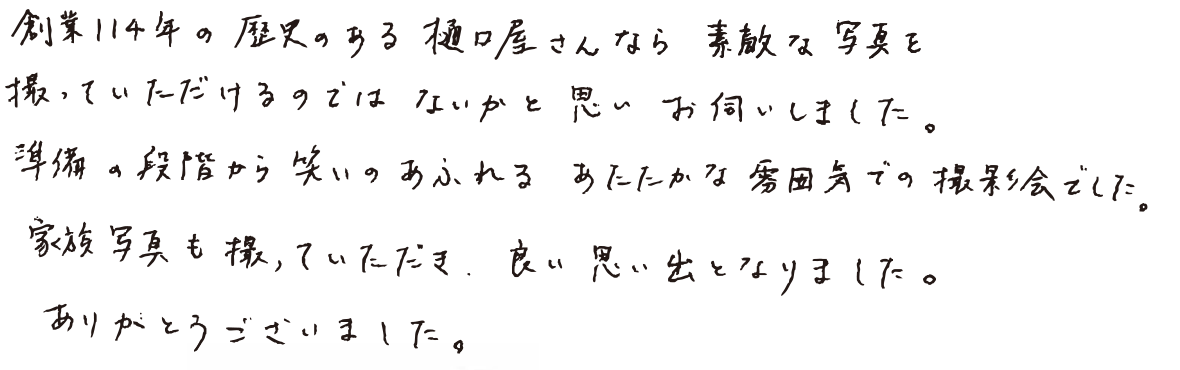 創業114年の歴史のある樋口屋さんなら素敵な写真を
撮っていただけるのではないかと思いお伺いしました。
準備の段階から笑いのあふれるあたたかな雰囲気での撮影会でした。
家族写真も撮っていただき、良い思い出となりました。
ありがとうございました。